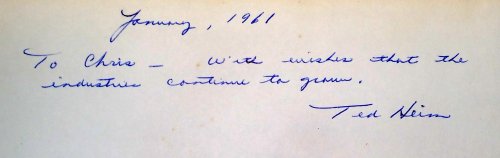 January, 1961
To Chris — With wishes that the
industries continue to grow.
Ted Heim